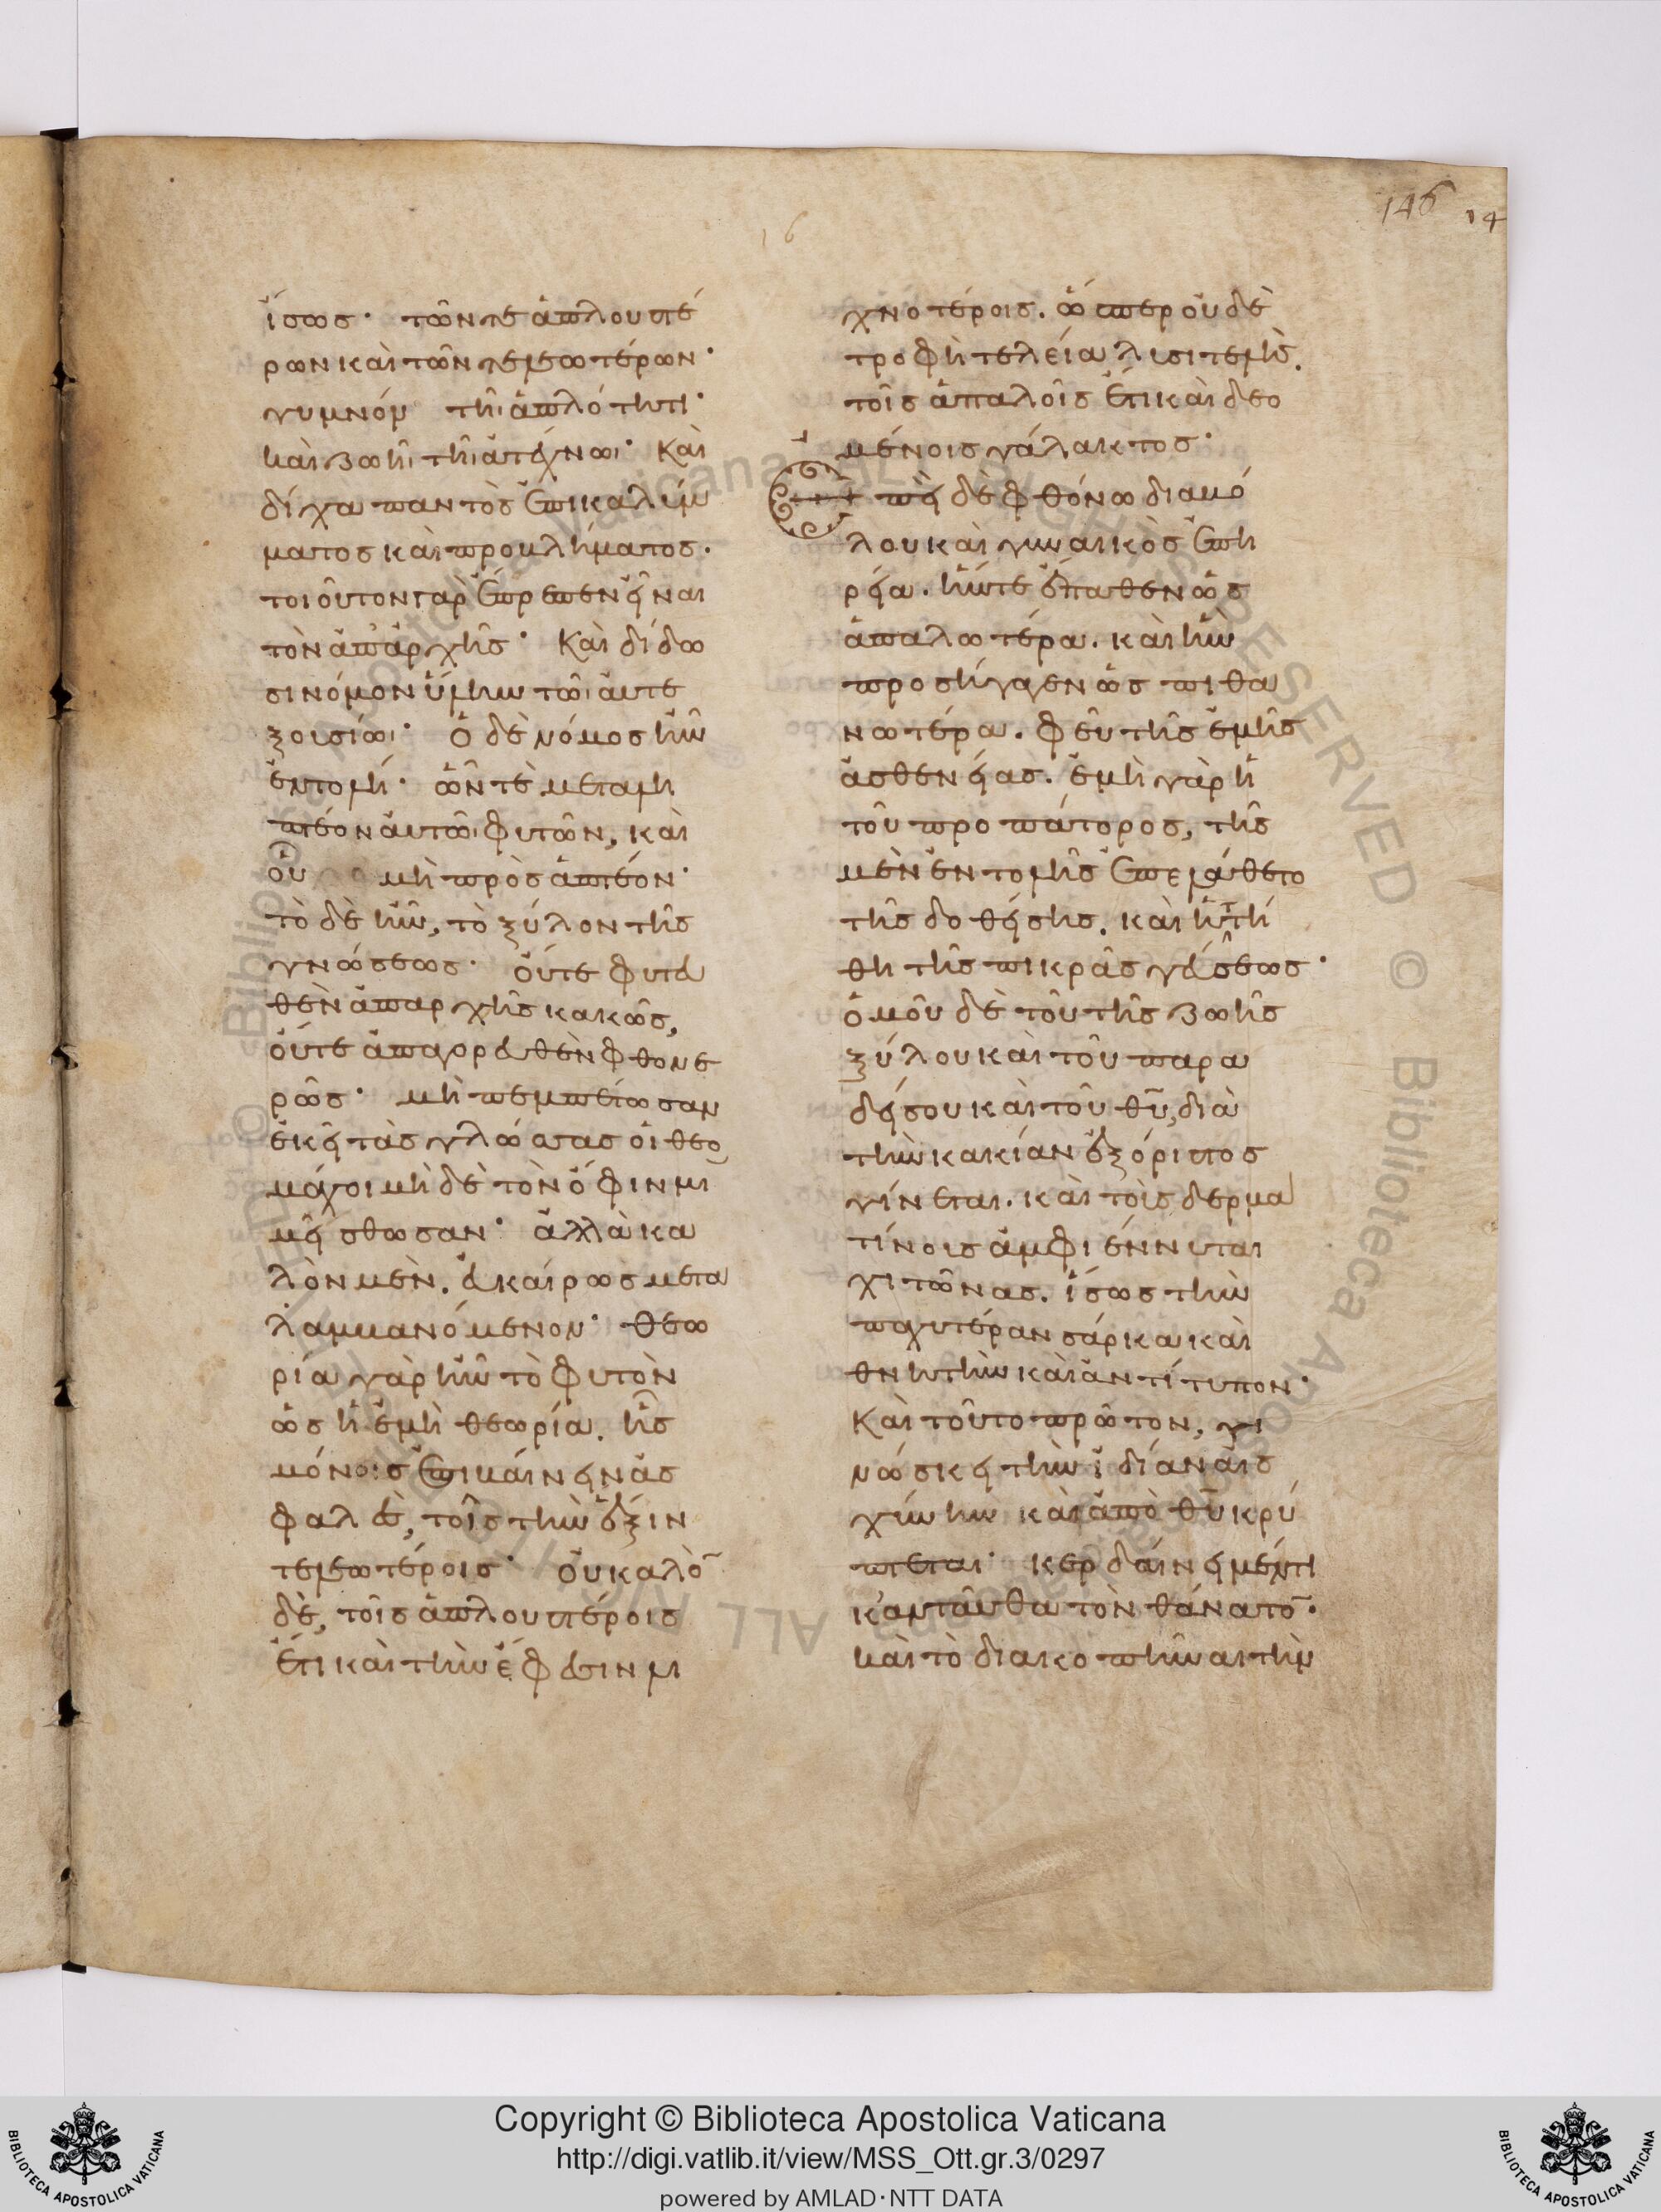 146 14
16
ἴσως· τῶν τε ἁπλουστέ
ρων καὶ τῶν τελεωτέρων·
γυμνὸν τῆι ἁπλότητι·
καὶ ζωῆι τῆι ἀτέχνωι· καὶ
δίχα παντὸς ἐπικαλύμ
ματος καὶ προβλήματος·
τοιοῦτον γὰρ ἔπρεπεν εἶναι
τὸν ἀπ' ἀρχῆς· καὶ δίδω
σι νόμον ὕλην τῶι αὐτε
ξουσίωι· ὁ δὲ νόμος ἦν
ἐντολή· ὧν τὲ μεταλη
πτέον αὐτῶι φυτῶν, καὶ
οὗ μὴ προσαπτέον·
τὸ δὲ ἦν, τὸ ξύλον τῆς
γνώσεως· οὔτε φυτευ
θὲν ἀπαρχῆς κακῶς,
οὔτε ἀπαγορευθὲν φθονε
ρῶς· μὴ πεμπέτωσαν
ἐκεῖ τὰς γλώσσας οἱ θεο
μάχοι μὴ δὲ τὸν ὄφιν μι
μείσθωσαν· ἀλλὰ κα
λὸν μὲν, εὐκαίρως μετα
λαμβανόμενον· θεω
ρία γὰρ ἦν τὸ φυτὸν
ὡς ἡ ἐμὴ θεωρία. ἧς
μόνοις ἐπιβαίνειν ἀσ
φαλὲς, τοῖς τὴν ἕξιν
τελεωτέροις· οὐ καλὸ̅
δὲ, τοῖς ἁπλουστέροις
ἔτι καὶ τὴν ἔφεσιν λι
χνοτέροις. ὥσπερ οὐδὲ
τροφὴ τελεία λυσιτελὴς.
τοῖς ἁπαλοῖς ἔτι καὶ δεο
μένοις γάλακτος·
Ἐπεὶ δὲ φθόνω διαβό
λου καὶ γυναικὸς ἐπη
ρεία. ἥν τε ἔπαθεν ὡς
ἁπαλωτέρα. καὶ ἣν
προσήγαγεν ὡς πιθα
νωτέρα. φεῦ τῆς ἐμῆς
ἀσθενείας. ἐμὴ γὰρ ἡ
τοῦ προπάτορος, τῆς
μὲν ἐντολῆς ἐπελάθετο
τῆς δοθείσης. καὶ ἡττή
θη τῆς πικρᾶς γεύσεως·
ὁμοῦ δὲ τοῦ τῆς ζωῆς
ξύλου καὶ τοῦ παρα
δείσου καὶ τοῦ θ̅υ̅, διὰ
τὴν κακίαν ἐξόριστος
γίνεται. καὶ τοὶς δερμα
τίνοις ἀμφιέννυται
χιτῶνας. ἴσως τὴν
παχυτέραν σάρκα καὶ
θνητὴν καὶ ἀντίτυπον·
καὶ τοῦτο πρῶτον, γι
νώσκει τὴν ἰδίαν αἰσ
χύνην καὶ ἀπὸ θ̅υ̅ κρύ
πτεται· κερδαίνει μέν τι
κἀνταῦθα τὸν θάνατο̅·
καὶ τὸ διακοπῆναι τὴν
Copyright © Biblioteca Apostolica Vaticana
http://digi.vatlib.it/view/MSS_Ott.gr.3/0297
powered by AMLAD·NTT DATA
BIBLIOTECA APOSTOLICA VATICANA
BIBLIOTECA APOSTOLICA VATICANA